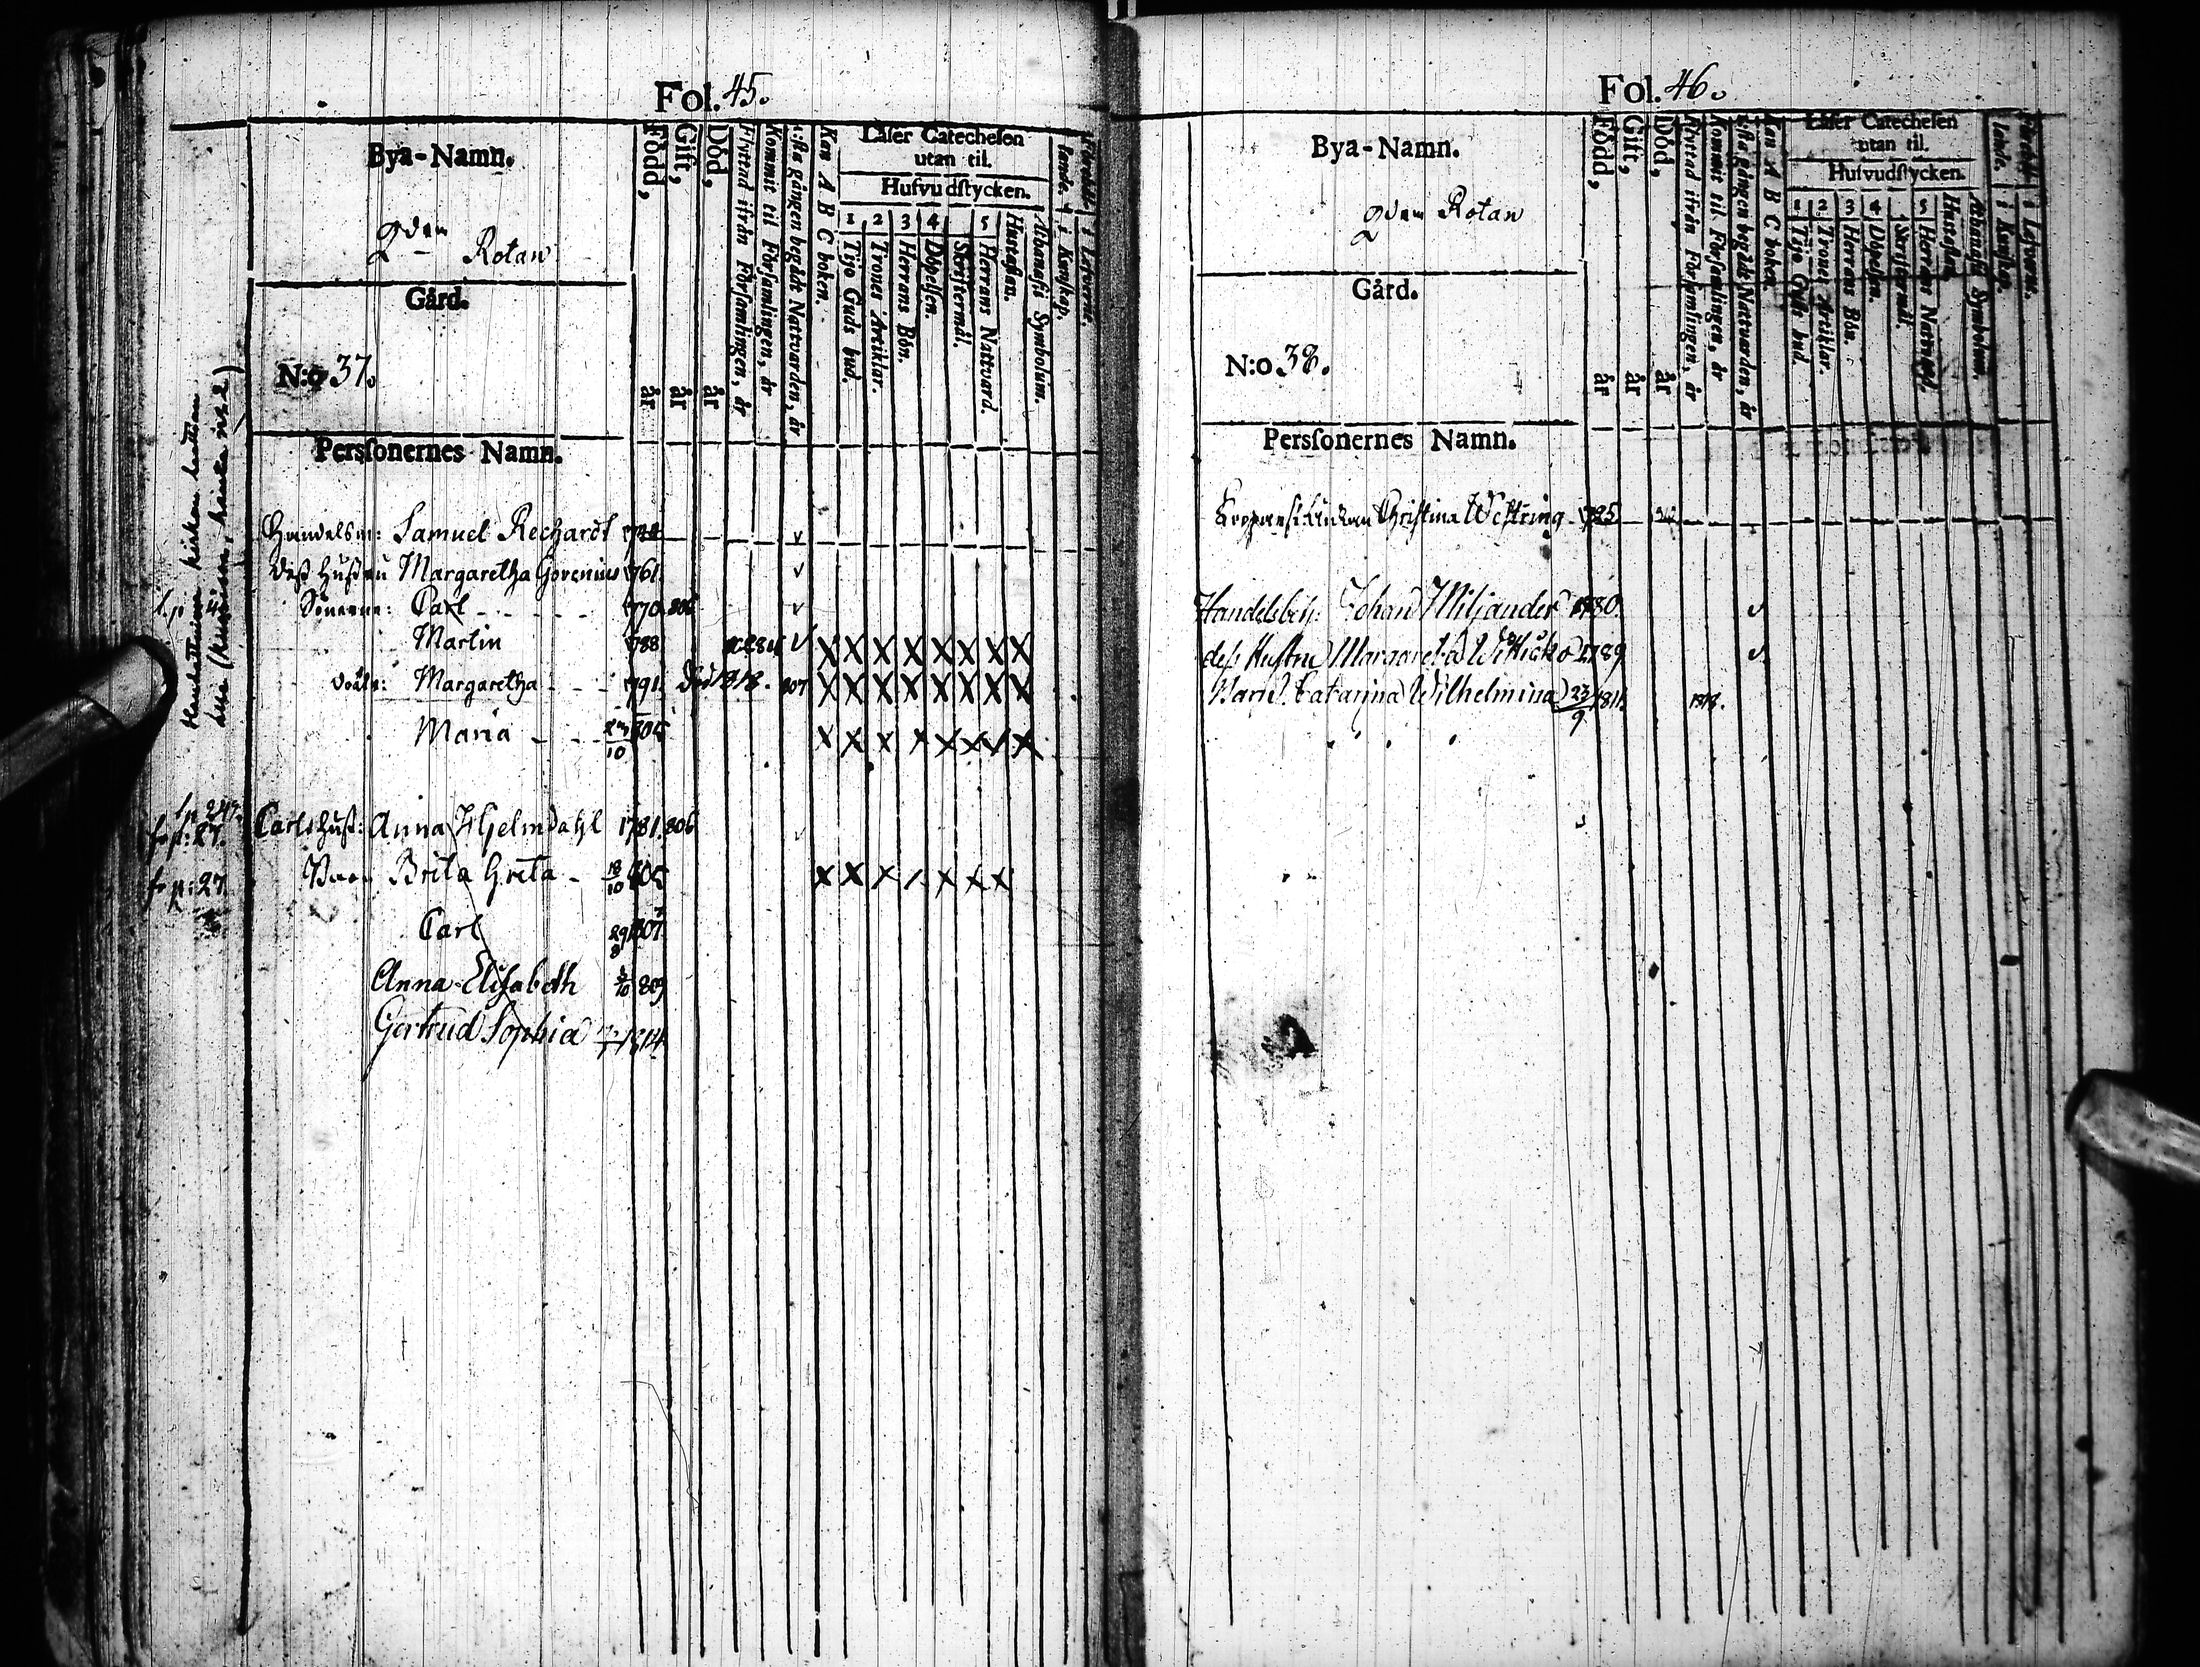 Fol. 45.
Bya-Namn.
2den Rotan
Gård.
N:o 37.
Personernes Namn.
Född, år
Gift, år
Död, år
Flyttad ifrån Församlingen, år
Kommit til Församlingen, år
1:sta gången begådt Nattvarden, år
Kan A B C boken.
Läser Catechesen
utan til.
Hufvudstycken.
1 Tijo Guds bud.
2 Trones Artiklar.
3 Herrans Bön.
4 Döpelsen.
Skriftermål.
5 Herrans Nattvard.
Hustaflan.
Athanasii Symbolum.
i Kunskap.
i Lefverne.
Handelsm: Samuel Rechardt
Dess Hustru Margaretha Gorenius 1761.
Sönerne: Carl 1770. 806
Martin 1788
Margaretha 1791. död 1818. 807
Maria 23/10 805
fr p: 27. Carls Hust: Anna Hjelmdahl 1781. 806
fr p: 27. Barn Brita Greta 18/10 805
Carl 29/8 1807.
Anna Elisabeth 809
Gertrud Sophia 1814.
Fol. 46.
Bya-Namn.
2den Rotan
Gård.
N:o 38.
Personernes Namn.
Född, år
Gift, år
Död, år
Flyttad ifrån Församlingen, år
Kommit til Församlingen, år
1:sta gången begådt Nattvarden, år
Kan A B C boken
Läser Catechesen
utan til.
Hufvudstycken.
1 Tijo Guds bud.
2 Trones Artiklar.
3 Herrans Bön.
4 Döpelsen.
Skriftermål.
5 Herrans Nattvard.
Hustaflan.
Athanasii Symbolum.
i Kunskap.
i Lefverne.
Christina Westring
Handelsbetj: Johan Miljander 1780.
dess Hustru Margareta 1789
Barn: Catarina Wilhelmina 23/9 1811. 1818.